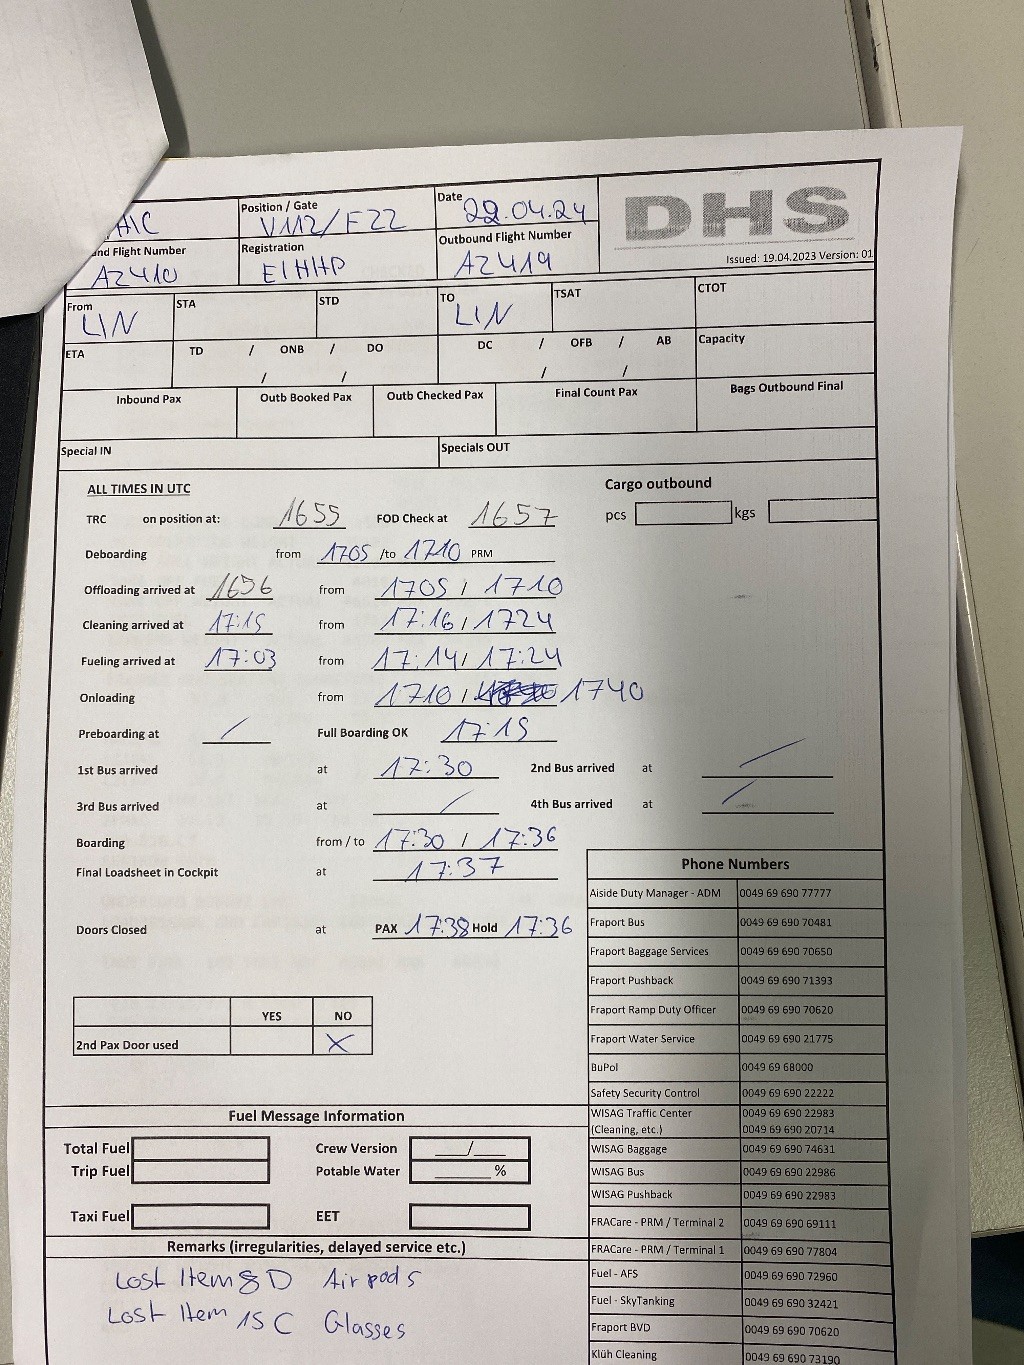 HIC
Position / Gate
V112/F22
Date
22.04.24
DHS
Issued: 19.04.2023 Version: 01
nd Flight Number
AZ410
Registration
EIHHP
Outbound Flight Number
AZ419
From
LIN
STA
STD
TO
LIN
TSAT
CTOT
ETA
TD / ONB / DO
/ /
DC / OFB / AB
/ /
Capacity
Inbound Pax
Outb Booked Pax
Outb Checked Pax
Final Count Pax
Bags Outbound Final
Special IN
Specials OUT
ALL TIMES IN UTC
Cargo outbound
TRC on position at: 1655 FOD Check at 1657
pcs kgs
Deboarding from 1705 /to 1710 PRM
Offloading arrived at 1656 from 1705 / 1710
Cleaning arrived at 17:15 from 17:16 / 1724
Fueling arrived at 17:03 from 17:14 / 17:24
Onloading from 1710 / 1740
Preboarding at / Full Boarding OK 17:15
1st Bus arrived at 17:30 2nd Bus arrived at /
3rd Bus arrived at / 4th Bus arrived at /
Boarding from / to 17:30 / 17:36
Final Loadsheet in Cockpit at 17:37
Doors Closed at PAX 17:38 Hold 17:36
YES NO
2nd Pax Door used X
Phone Numbers
Aiside Duty Manager - ADM 0049 69 690 77777
Fraport Bus 0049 69 690 70481
Fraport Baggage Services 0049 69 690 70650
Fraport Pushback 0049 69 690 71393
Fraport Ramp Duty Officer 0049 69 690 70620
Fraport Water Service 0049 69 690 21775
BuPol 0049 69 68000
Safety Security Control 0049 69 690 22222
WISAG Traffic Center 0049 69 690 22983
(Cleaning, etc.) 0049 69 690 20714
WISAG Baggage 0049 69 690 74631
WISAG Bus 0049 69 690 22986
WISAG Pushback 0049 69 690 22983
FRACare - PRM / Terminal 2 0049 69 690 69111
FRACare - PRM / Terminal 1 0049 69 690 77804
Fuel - AFS 0049 69 690 72960
Fuel - SkyTanking 0049 69 690 32421
Fraport BVD 0049 69 690 70620
Klüh Cleaning 0049 69 690 73190
Fuel Message Information
Total Fuel
Crew Version /
Trip Fuel
Potable Water %
Taxi Fuel
EET
Remarks (irregularities, delayed service etc.)
Lost Item 8D Airpods
Lost Item 15C Glasses